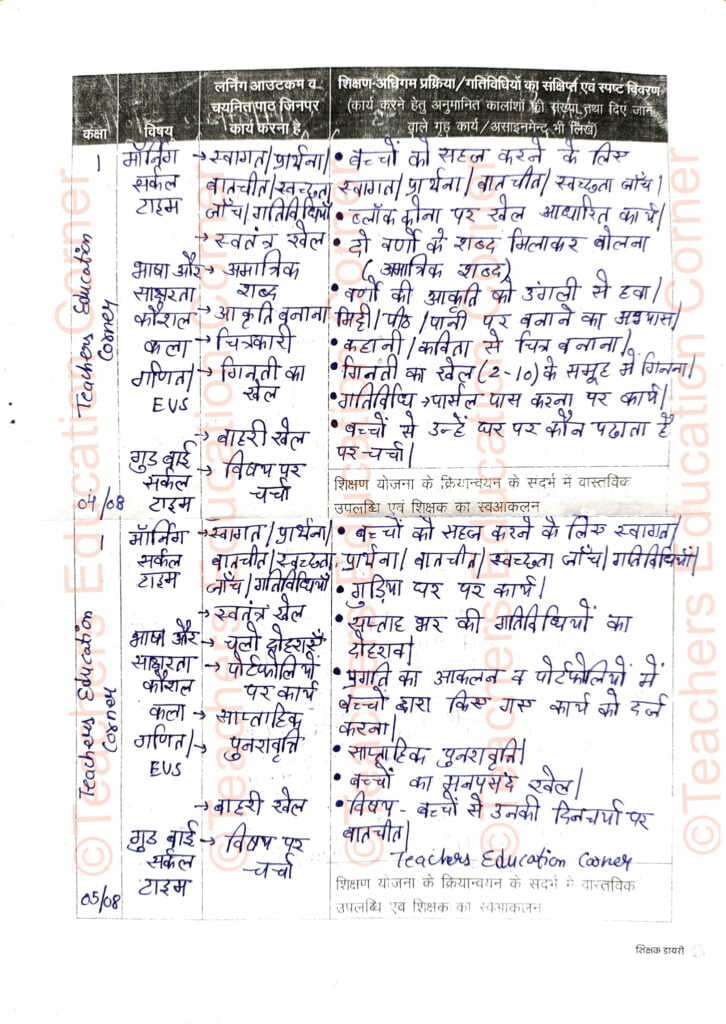 कक्षा
विषय
लर्निंग आउटकम व
चयनित पाठ जिनपर
कार्य करना है
शिक्षण-अधिगम प्रक्रिया/गतिविधियों का संक्षिप्त एवं स्पष्ट विवरण
(कार्य करने हेतु अनुमानित कालांशों की संख्या तथा दिए जाने
वाले गृह कार्य/असाइनमेन्ट भी लिखें)
1
Teachers Education
Corner
04/08
मॉर्निंग
सर्कल
टाइम
भाषा और
साक्षरता
कौशल
कला
गणित/
EVS
गुड बाई
सर्कल
टाइम
→ स्वागत/प्रार्थना/
बातचीत/स्वच्छता
जाँच/गतिविधियाँ
→ स्वतंत्र खेल
→ अमात्रिक
शब्द
→ आकृति बनाना
→ चित्रकारी
→ गिनती का
खेल
→ बाहरी खेल
→ विषय पर
चर्चा
• बच्चों को सहज करने के लिए
स्वागत/प्रार्थना/बातचीत/स्वच्छता जाँच।
• ब्लॉक कोना पर खेल आधारित कार्य।
• दो वर्णों के शब्द मिलाकर बोलना
(अमात्रिक शब्द)
• वर्णों की आकृति को उंगली से हवा/
मिट्टी/पीठ/पानी पर बनाने का अभ्यास।
• कहानी/कविता से चित्र बनाना।
• गिनती का खेल (2-10) के समूह में गिनना।
• गतिविधि → पार्सल पास करना पर कार्य।
• बच्चों से उन्हें घर पर कौन पढाता है
पर चर्चा।
शिक्षण योजना के क्रियान्वयन के संदर्भ में वास्तविक
उपलब्धि एवं शिक्षक का स्वआकलन
1
Teachers Education
Corner
05/08
मॉर्निंग
सर्कल
टाइम
भाषा और
साक्षरता
कौशल
कला
गणित/
EVS
गुड बाई
सर्कल
टाइम
→ स्वागत/प्रार्थना/
बातचीत/स्वच्छता
जाँच/गतिविधियाँ
→ स्वतंत्र खेल
→ चलो दोहराएँ
→ पोर्टफोलियों
पर कार्य
→ साप्ताहिक
पुनरावृत्ति
→ बाहरी खेल
→ विषय पर
चर्चा
• बच्चों को सहज करने के लिए स्वागत/
प्रार्थना/बातचीत/स्वच्छता जाँच/गतिविधियाँ।
• गुड़िया घर पर कार्य।
• सप्ताह भर की गतिविधियों का
दोहराव।
• प्रगति का आकलन व पोर्टफोलियों में
बच्चों द्वारा किए गए कार्य को दर्ज
करना।
• साप्ताहिक पुनरावृत्ति।
• बच्चों का मनपसंद खेल।
• विषय - बच्चों से उनकी दिनचर्या पर
बातचीत।
Teachers Education Corner
शिक्षण योजना के क्रियान्वयन के संदर्भ में वास्तविक
उपलब्धि एवं शिक्षक का स्वआकलन
शिक्षक डायरी
©Teachers Education Corner
©Teachers Education Corner
©Teachers Education Corner
©Teachers Education Corner
©Teachers Education Corner